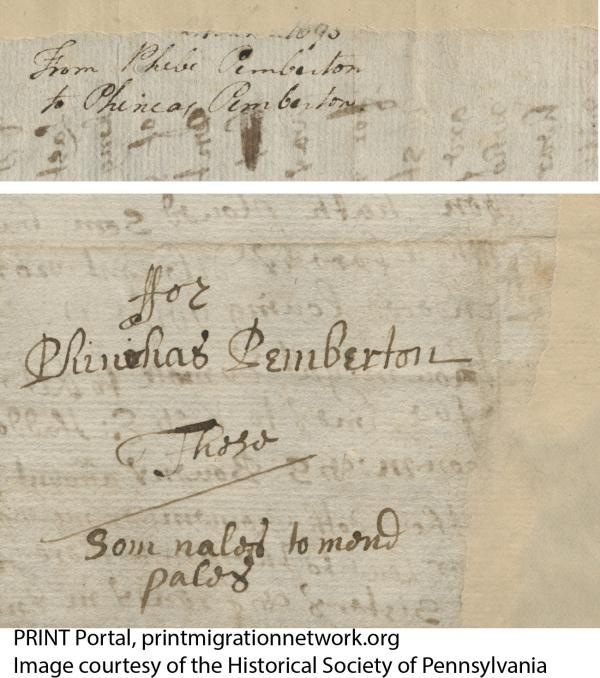 1695
From Phebe Pemberton
to Phineas Pemberton
ffor
Phinehas Pemberton
These
Som nales to mend
pales
PRINT Portal, printmigrationnetwork.org
Image courtesy of the Historical Society of Pennsylvania